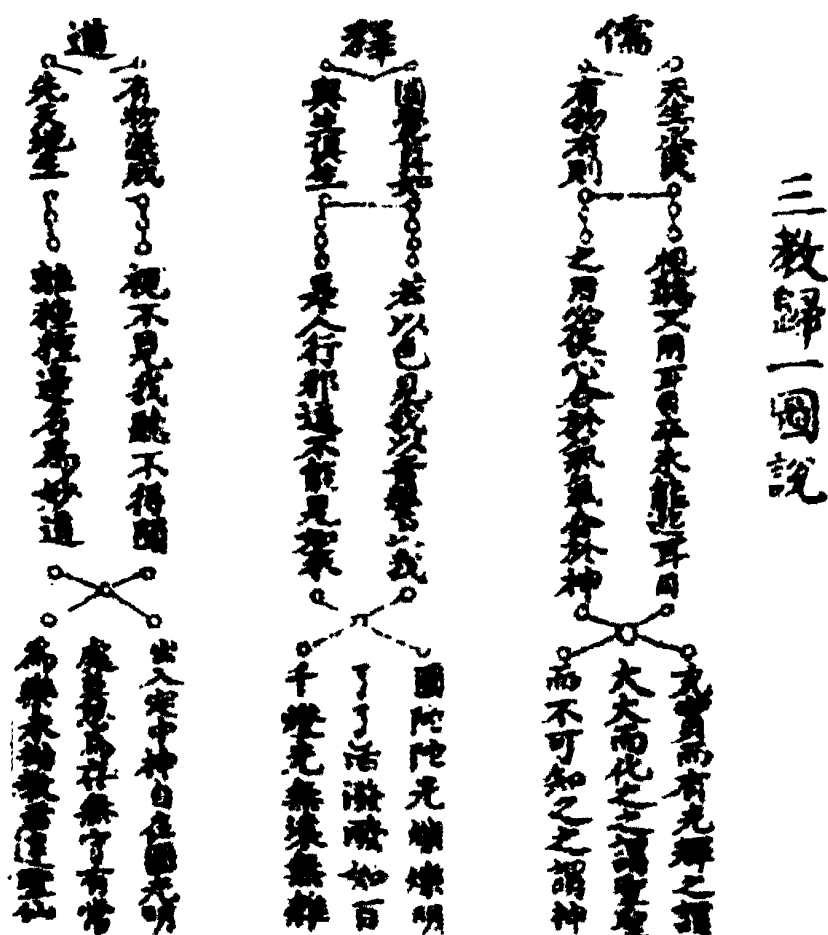 三教歸一圖說
儒
天生烝民
有物有則
視聽又問耳目卒未能遽耳目
之用必使心合於氣氣合於神
充實而有光輝之謂
大大而化之之謂聖聖
而不可知之之謂神
釋
圓覺普照
與生俱生
若以色見我以音聲求我
是人行邪道不能見如來
圓陀陀光爍爍明
了了活潑潑如百
千燈光無壞無雜
道
有物混成
先天地生
視不見我聽不得聞
離種種邊名為妙道
出入定中神自在圓光明
處慧為存無守有常
為樂永劫教君住聖仙